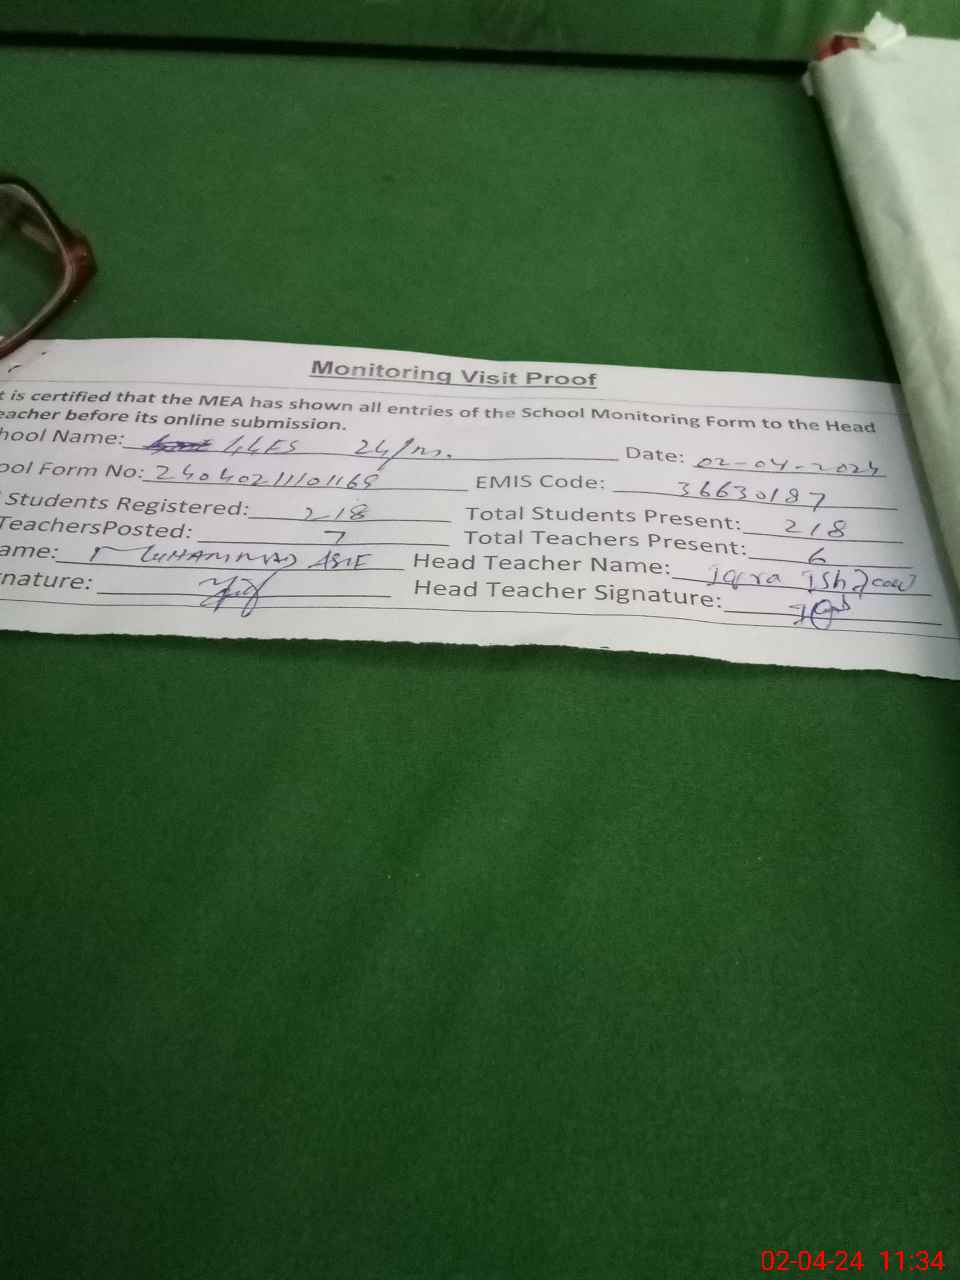 Monitoring Visit Proof
t is certified that the MEA has shown all entries of the School Monitoring Form to the Head
eacher before its online submission.
hool Name: GGES 24/m. Date: 02-04-2024
ool Form No: 24040211101168 EMIS Code: 36630187
Students Registered: 218 Total Students Present: 218
TeachersPosted: 7 Total Teachers Present: 6
ame: MUHAMMAD ASIF Head Teacher Name: iqra
nature: Head Teacher Signature:
02-04-24 11:34